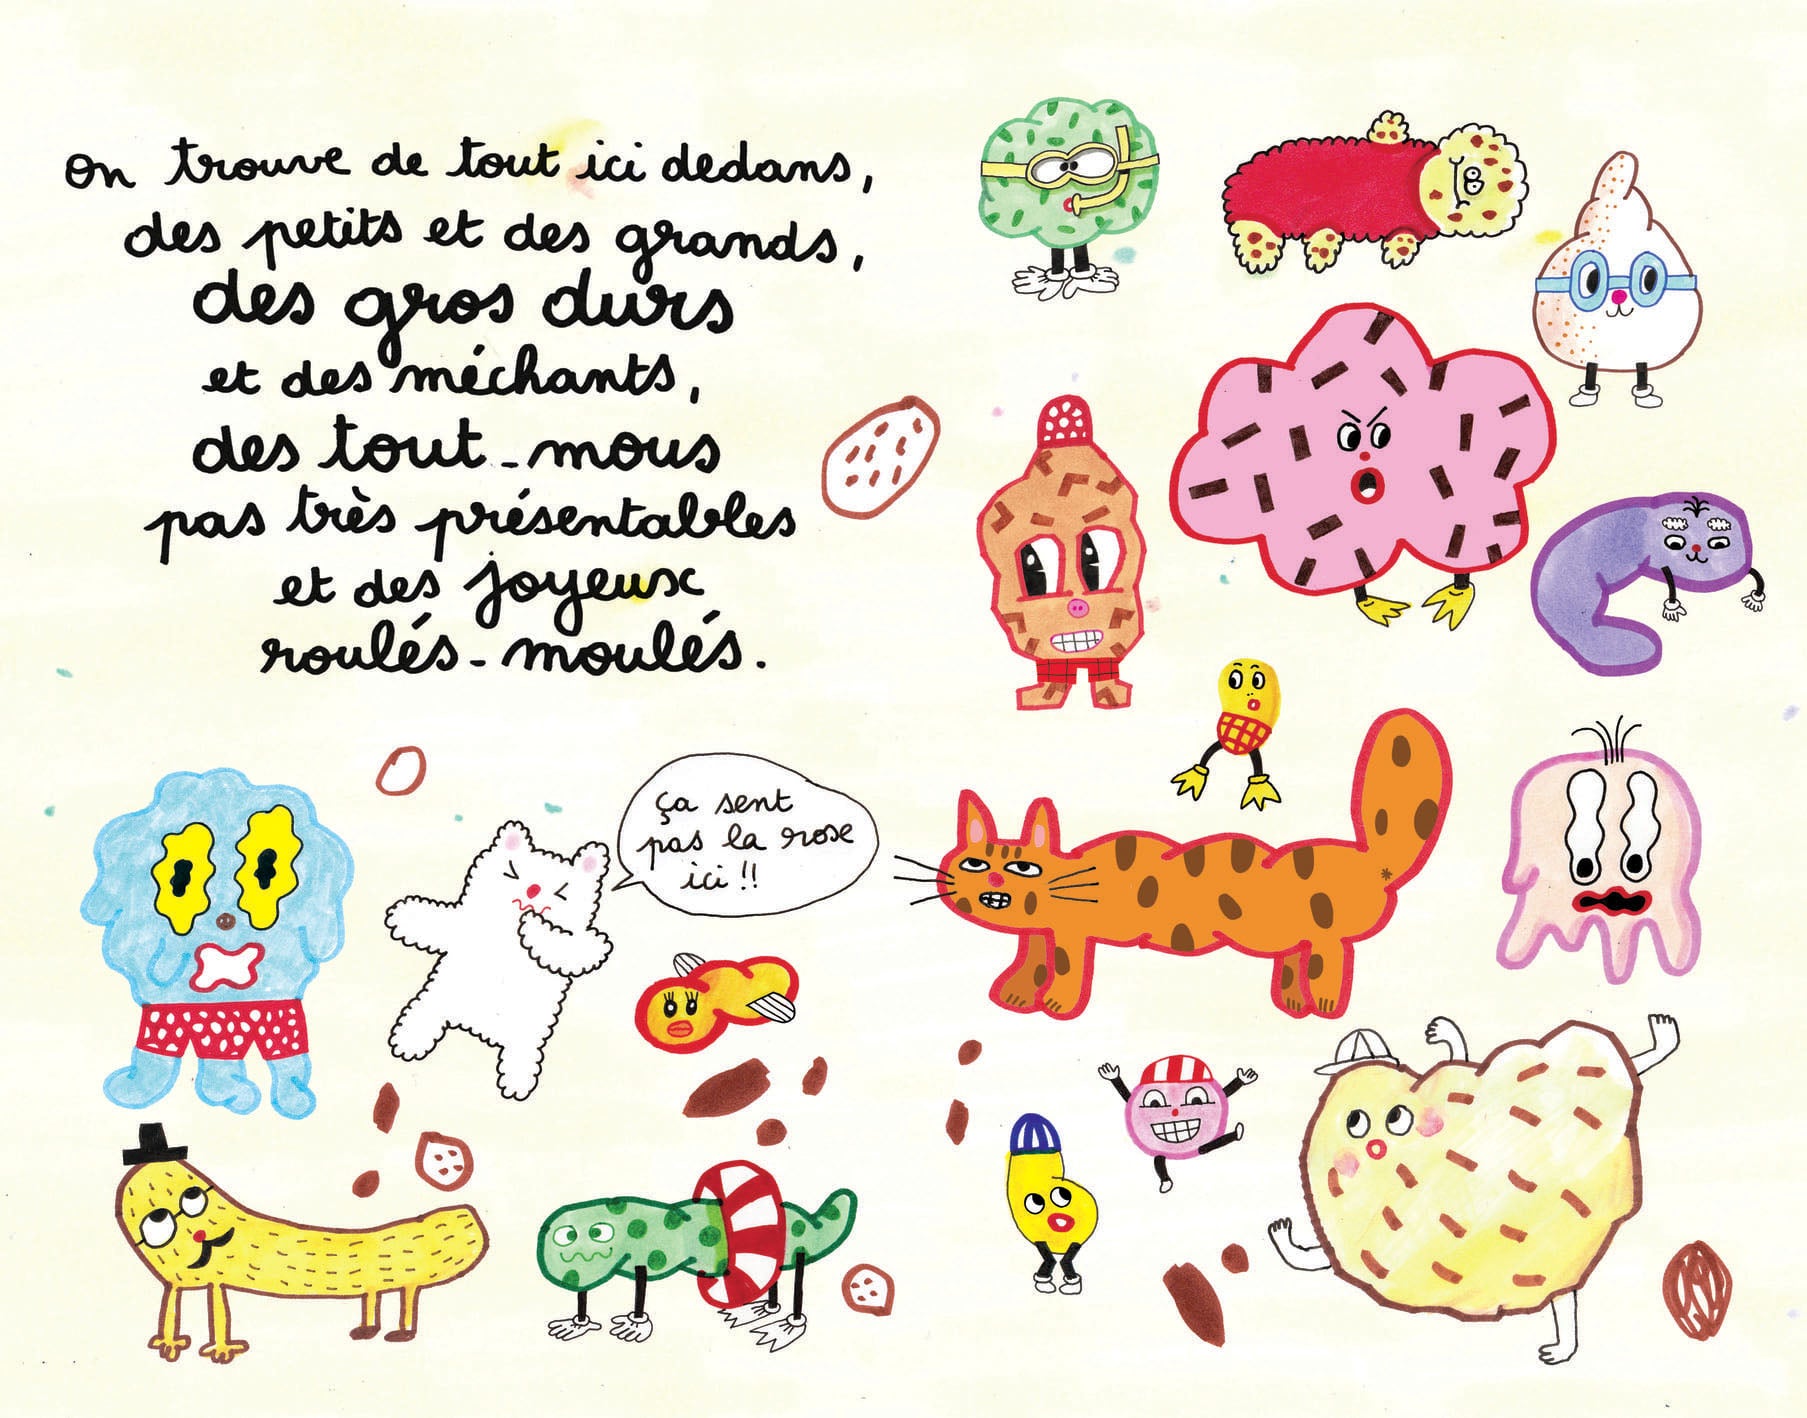 on trouve de tout ici dedans,
des petits et des grands,
des gros durs
et des méchants,
des tout-mous
pas très présentables
et des joyeux
roulés-moulés.
ça sent
pas la rose
ici !!